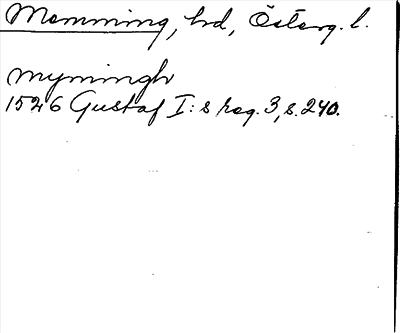 Memming, hd, Österg. l.
mÿmingh
1526 Gustaf I:s reg. 3, s. 240.